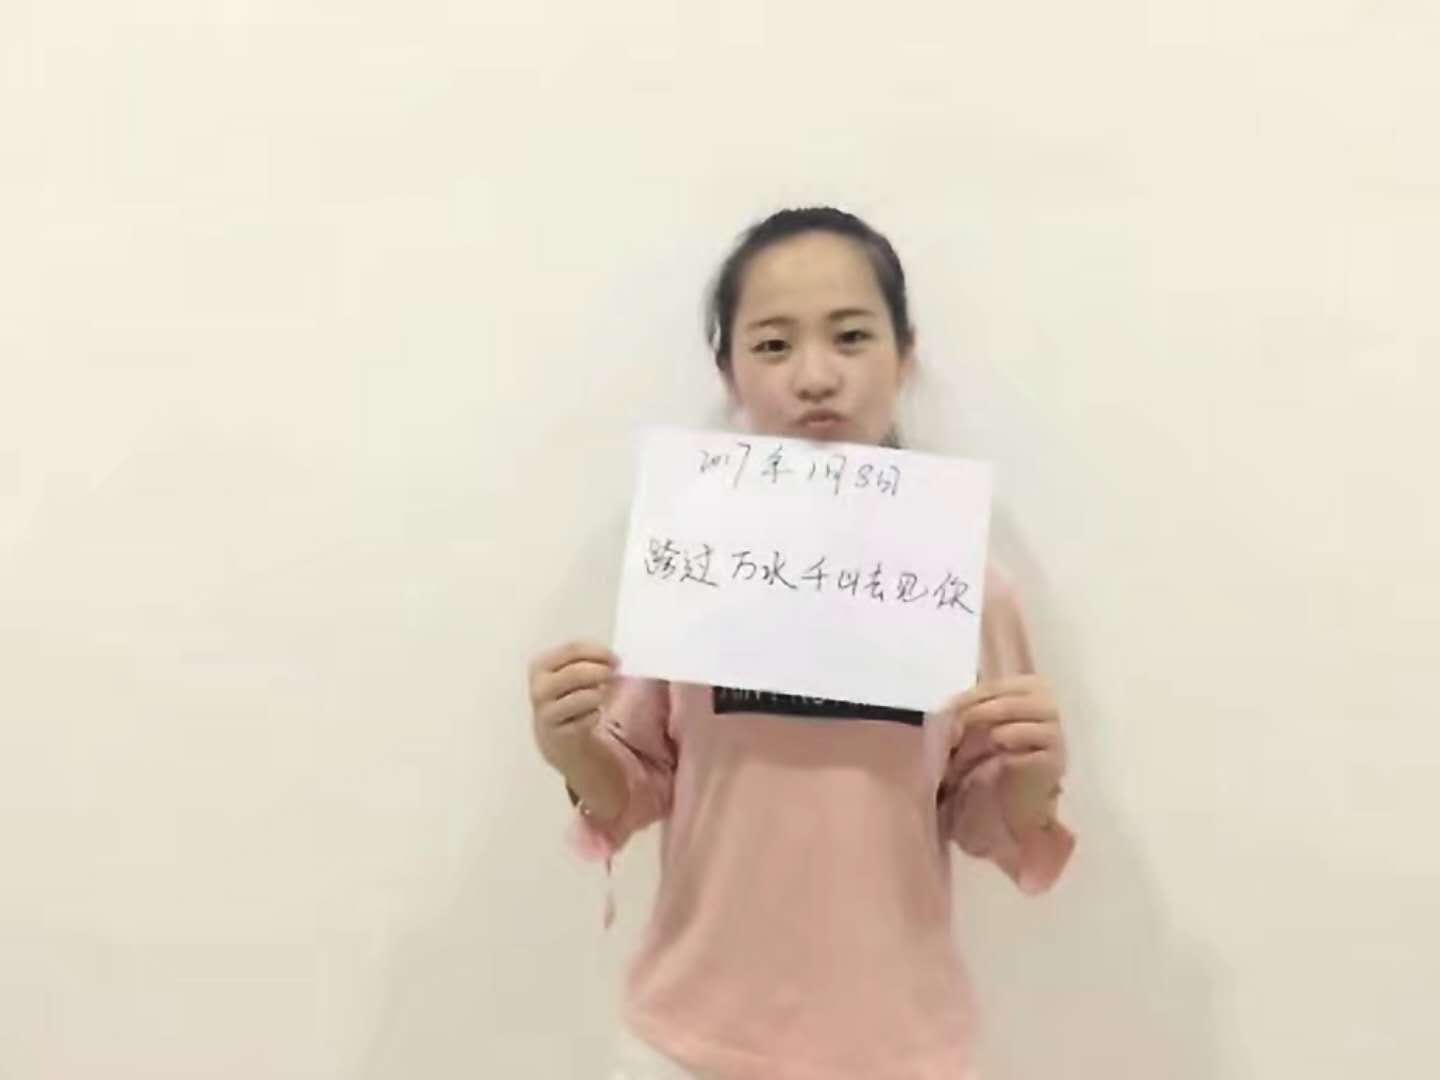 2017年1月8日
跨过万水千山去见你